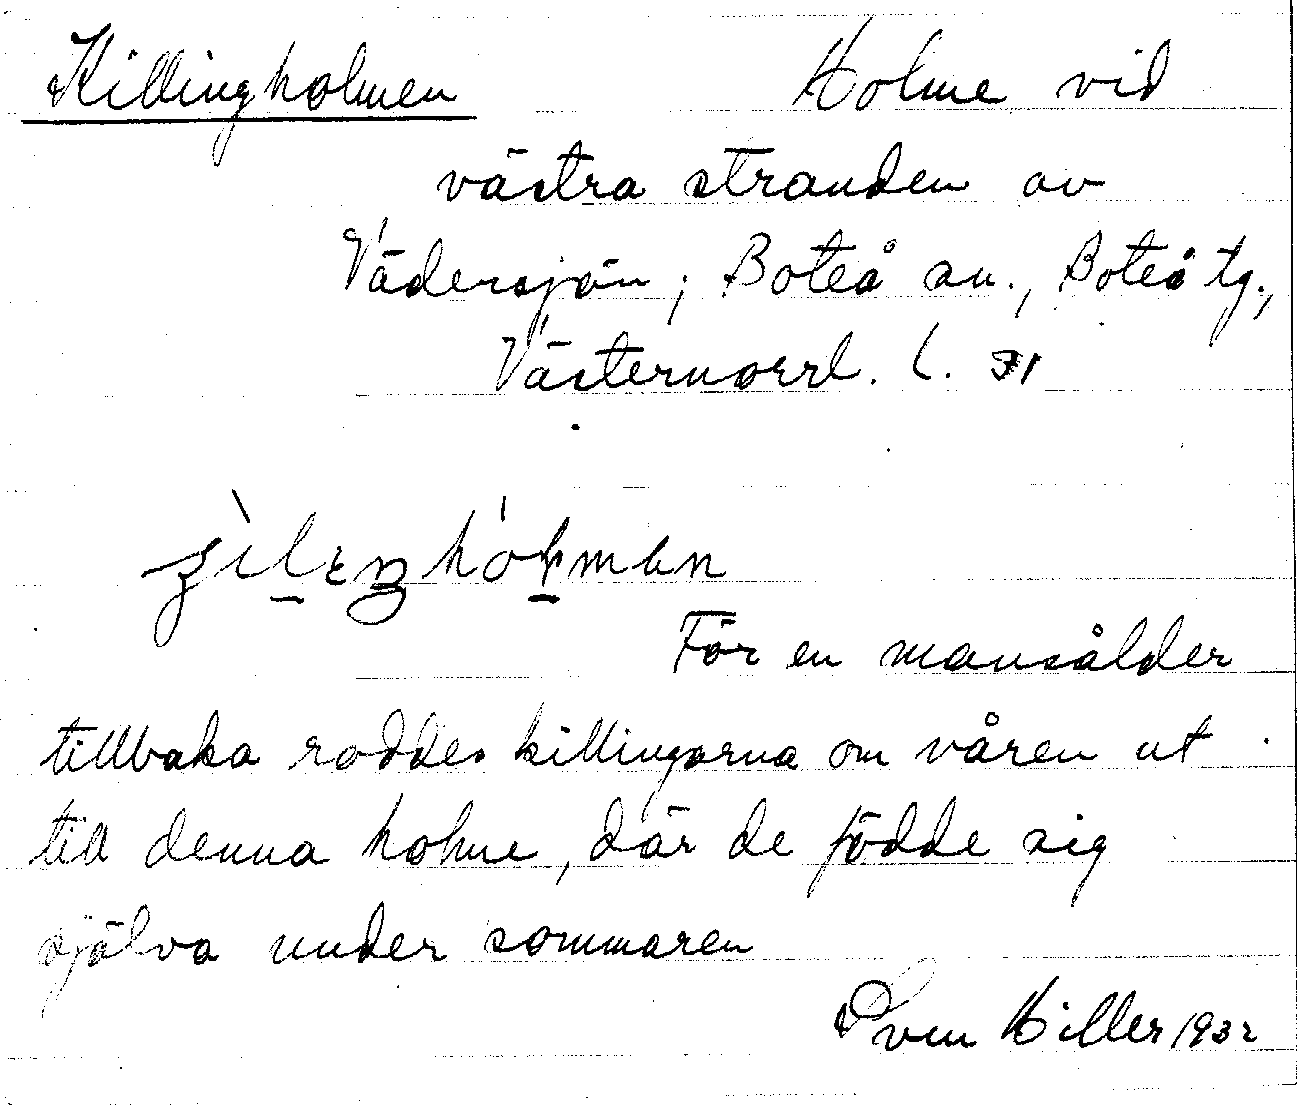 Killingholmen Holme vid
västra stranden av
Vädersjön; Boteå sn., Boteå tg.,
Västernorrl. l.
För en mansålder
tillbaka roddes killingarna om våren ut
till denna holme, där de födde sig
själva under sommaren
Sven Hiller 1932